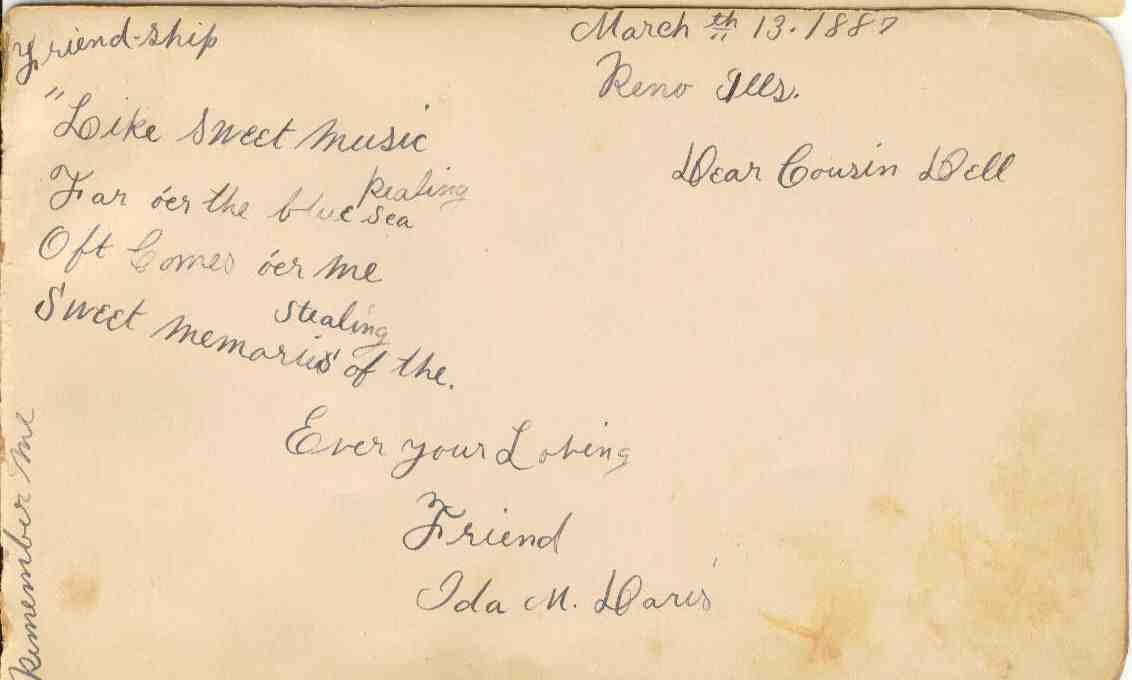 Friend-ship
March th 13. 1887
Reno Ills.
Dear Cousin Dell
"Like Sweet Music
Pealing
Far o'er the blue sea
Oft Comes o'er me
Stealing
Sweet memories of the.
Ever your Loving
Friend
Ida M. Davis
Remember Me